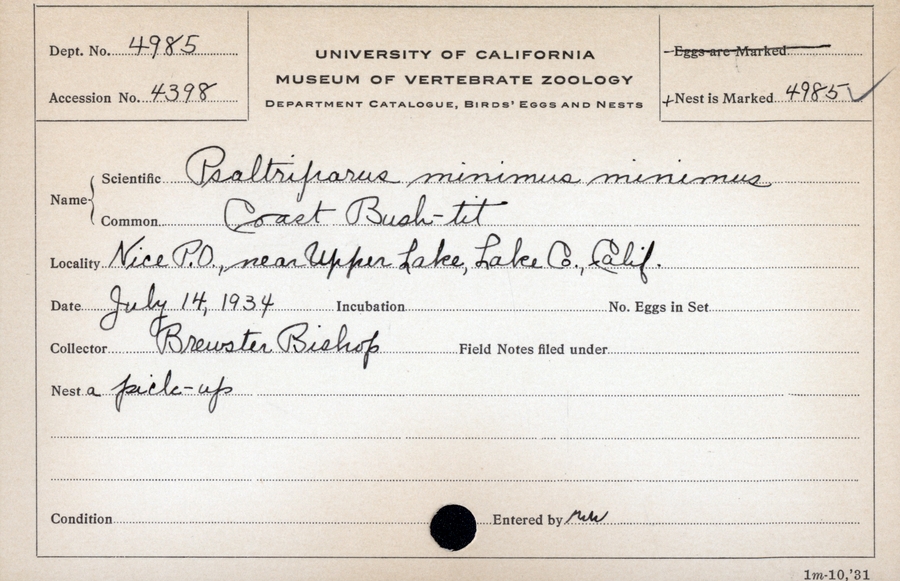 Dept. No. 4985
Accession No. 4398
UNIVERSITY OF CALIFORNIA
MUSEUM OF VERTEBRATE ZOOLOGY
DEPARTMENT CATALOGUE, BIRDS' EGGS AND NESTS
Eggs are Marked
+Nest is Marked 4985 ✓
Name
Scientific Psaltriparus minimus minimus
Common Coast Bush-tit
Locality Nice P.O., near Upper Lake, Lake Co., Calif.
Date July 14, 1934 Incubation No. Eggs in Set
Collector Brewster Bishop Field Notes filed under
Nest a pick-up
Condition Entered by
1m-10,'31